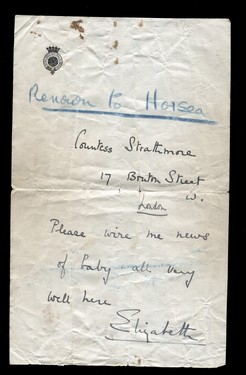 Renown to Horsea
Countess Strathmore
17 Bruton Street
W.
London
Please wire me news
of baby all very
well here
Elizabeth